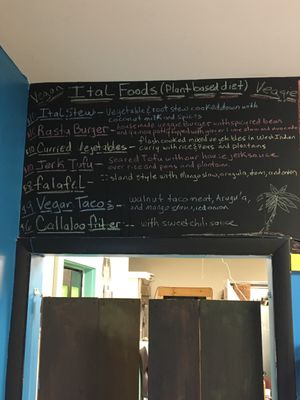 Vegan Ital Foods (Plant based diet) Veggie
Ital Stew - Vegetable & root stew cooked down with
coconut milk and spices
Rasta Burger - housemade veggie burger with spicy red bean
and quinoa patty topped with
slaw and avocado
Curried Vegetables - Flash cooked mixed vegetables in West Indian
curry with rice & peas and plantains
Jerk Tufu - Seared Tofu with our house jerk sauce
over rice and peas and plantain
falafel - island style with Mango slaw, arugula, and onion
Vegan Tacos - walnut taco meat, Arugula,
and mango onion
Callaloo fritter - - with sweet chili sauce